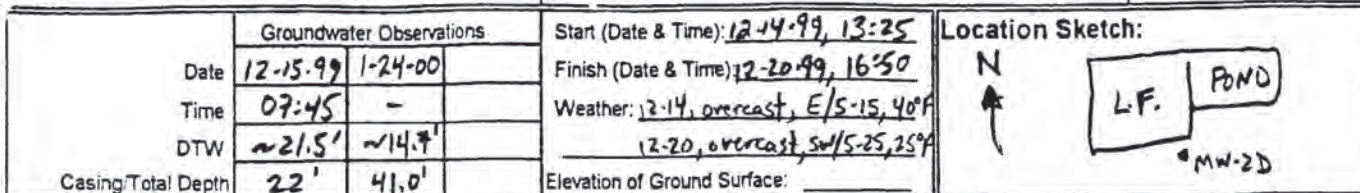 Groundwater Observations
Date 12-15-99 1-24-00
Time 07:45 -
DTW ~21.5' ~14.7'
Casing/Total Depth 22' 41.0'
Start (Date & Time): 12-14-99, 13:25
Finish (Date & Time): 12-20-99, 16:50
Weather: 12-14, overcast, E/5-15, 40°F
12-20, overcast, SW/5-25, 25°F
Elevation of Ground Surface:
Location Sketch:
N
L.F.
POND
MW-2D